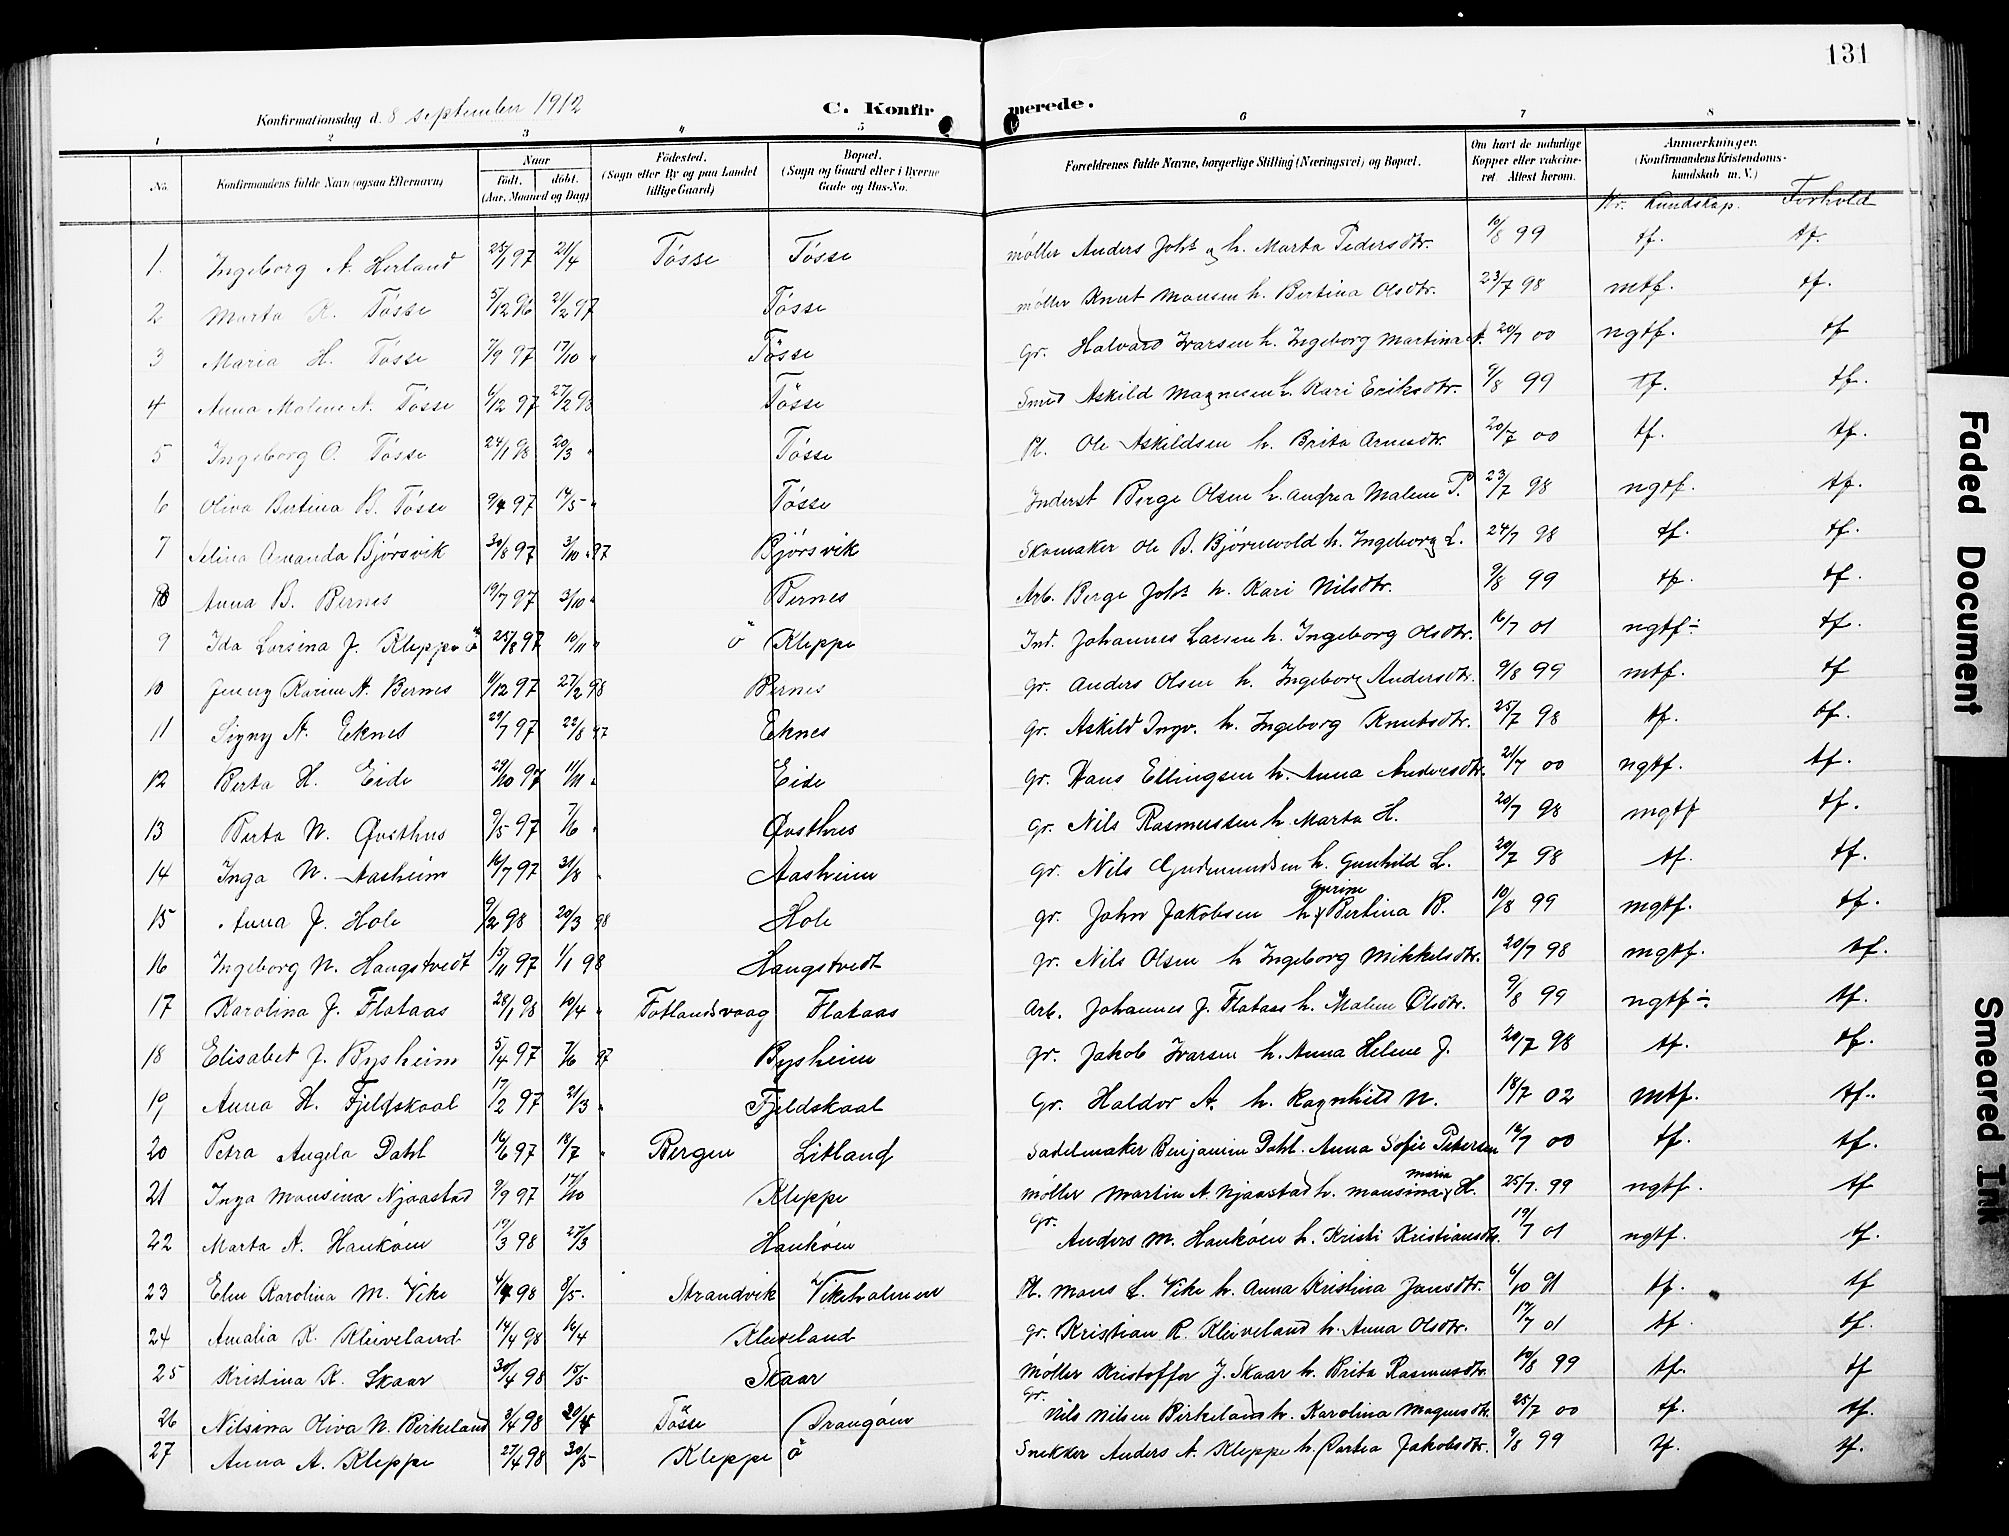 131
Konfirmationsdag d. 8 september 1912 C. Konfirmerede.
1 2 3 4 5 6 7 8
No. Konfirmandens fulde Navn (ogsaa Efternavn) Naar født. døbt. (Aar, Maaned og Dag) Fødested. (Sogn eller By og paa Landet tillige Gaard) Bopæl. (Sogn og Gaard eller i Byerne Gade- og Hus-No. Forældrenes fulde Navne, borgerlige Stilling (Næringsvei) og Bopæl. Om havt de naturlige Kopper eller vaccineret Attest herom. Anmerkninger. (Konfirmandens Kristendomskundskab m. V.)
Kr. Kundskap. Forhold
1. Ingeborg A. Herland 25/1 97 21/4 Tøsse Tøsse møller Anders Johs og h. Marta Pedersdtr. 10/8 99 tf. tf.
2 Marta K. Tøsse 5/12 96 21/2 97 Tøsse møller Knut Monsen h. Bertina Olsdtr. 23/7 98 mtf. tf.
3 Maria H. Tøsse 7/9 97 17/10 " Tøsse Gr. Halvard Ivarsen h. Ingeborg Martina A. 20/7 00 ngtf. tf
4 Anna Malene A. Tøsse 6/12 97 27/2 98 Tøsse Smed Askild Magnesen h. Kari Eriksdtr. 9/8 99 tf. tf.
5 Ingeborg O. Tøsse 24/1 98 20/3 " Tøsse Pl. Ole Askildsen h. Brita Arnesdtr. 20/7 00 tf. tf.
6 Oliva Bertina B. Tøsse 9/4 97 17/5 " Tøsse Inderst Berge Olsen h. Andrea Malene P. 23/7 98 ngtf. tf.
7 Selina Amanda Bjørsvik 30/8 97 3/10 97 Bjørsvik Skomaker Ole B. Bjørnevold h. Ingeborg L. 24/7 98 tf. tf.
8 Anna B. Bernes 19/7 97 3/10 " Bernes Arb. Berge Johs h. Kari Nilsdtr. 9/8 99 tf. tf.
9 Ida Larsina J. Kleppe ö 25/8 97 10/11 " ö Kleppe Ind. Johannes Larsen h. Ingeborg Olsdtr. 16/7 01 ngtf÷ tf.
10 Jenny Karine A. Bernes 9/12 97 27/2 98 Bernes Gr. Anders Olsen h. Ingeborg Andersdtr. 9/8 99 mtf. tf
11 Signy A. Eknes 29/7 97 22/8 97 Eknes Gr. Askild Ingv. h. Ingeborg Knutsdtr. 25/7 98 tf. tf.
12 Berta H. Eide 29/10 97 11/11 " Eide Gr. Hans Ellingsen h. Anna Andersdtr. 21/7 00 ngtf. tf.
13 Berta N. Øvsthus 9/5 97 7/6 " Øvsthus Gr. Nils Rasmussen h. Marta H. 20/7 98 mgtf tf.
14 Inga N. Aasheim 16/7 97 31/8 " Aasheim Gr. Nils Gudmundsen h. Gunhild L. 20/7 98 tf. tf.
15 Anna J. Hole 9/2 98 20/3 98 Hole Gr. John Jakobsen h. Gurine Bertina B. 10/8 99 mgtf. tf.
16 Ingeborg N. Haugstvedt 15/11 97 1/1 98 Haugstvedt Gr. Nils Olsen h Ingeborg Mikkelsdtr. 20/7 98 mgtf. tf.
17 Karolina J. Flataas 28/1 98 10/4 " Fotlandsvaag Flataas Arb. Johannes J. Flataas h. Malene Olsdtr. 9/8 99 ngtf÷ tf.
18 Elisabet J. Bysheim 5/4 97 7/6 97 Bysheim Gr. Jakob Ivarsen h. Anna Helene J. 20/7 98 tf. tf.
19 Anna H. Fjeldskaal 17/2 97 21/3 " Fjeldskaal Gr. Haldor A. h. Ragnhild N. 18/7 02 mtf. tf.
20 Petra Angela Dahl 16/6 97 18/7 " Bergen Litland Sadelmaker Benjamin Dahl. Anna Sofie Petersen 12/7 00 tf. tf.
21 Inga Monsina Njaastad 9/9 97 17/10 Kleppe møller Martin A. Njaastad h. Monsina maria H. 25/7. 99 ngtf. tf
22 Marta A. Haukøen 19/3 98 27/3 Haukøen Gr. Anders M. Haukøen h. Kristi Kristiansdtr. 19/7 01 ngtf. tf.
23 Elen Karolina M. Vike 4/4 98 8/5. Strandvik Vikeholmen Pl. Mons L. Vike h. Anna Kristina Jansdtr. 6/10 91 tf. tf
24 Amalia K. Kleiveland 14/4 98 16/4 Kleiveland Gr. Kristian R. Kleiveland h. Anna Olsdtr. 17/7 01 tf. tf.
25 Kristina K. Skaar 30/4 98 15/5 Skaar Møller Kristoffer J. Skaar h. Brita Rasmusdtr. 10/8 99 tf. tf
26 Nilsina Oliva N. Birkeland 3/4 98 20/4 Tøsse Drangøen Gr. Nils Nilsen Birkeland h. Karolina Magnesdtr. 25/7 00 tf. tf.
27 Anna A. Kleppe 27/4 98 30/5 Kleppe ö Snekker Anders A. Kleppe h. Partea Jakobsdtr. 9/8 99 tf. tf.
Faded Document
Smeared Ink